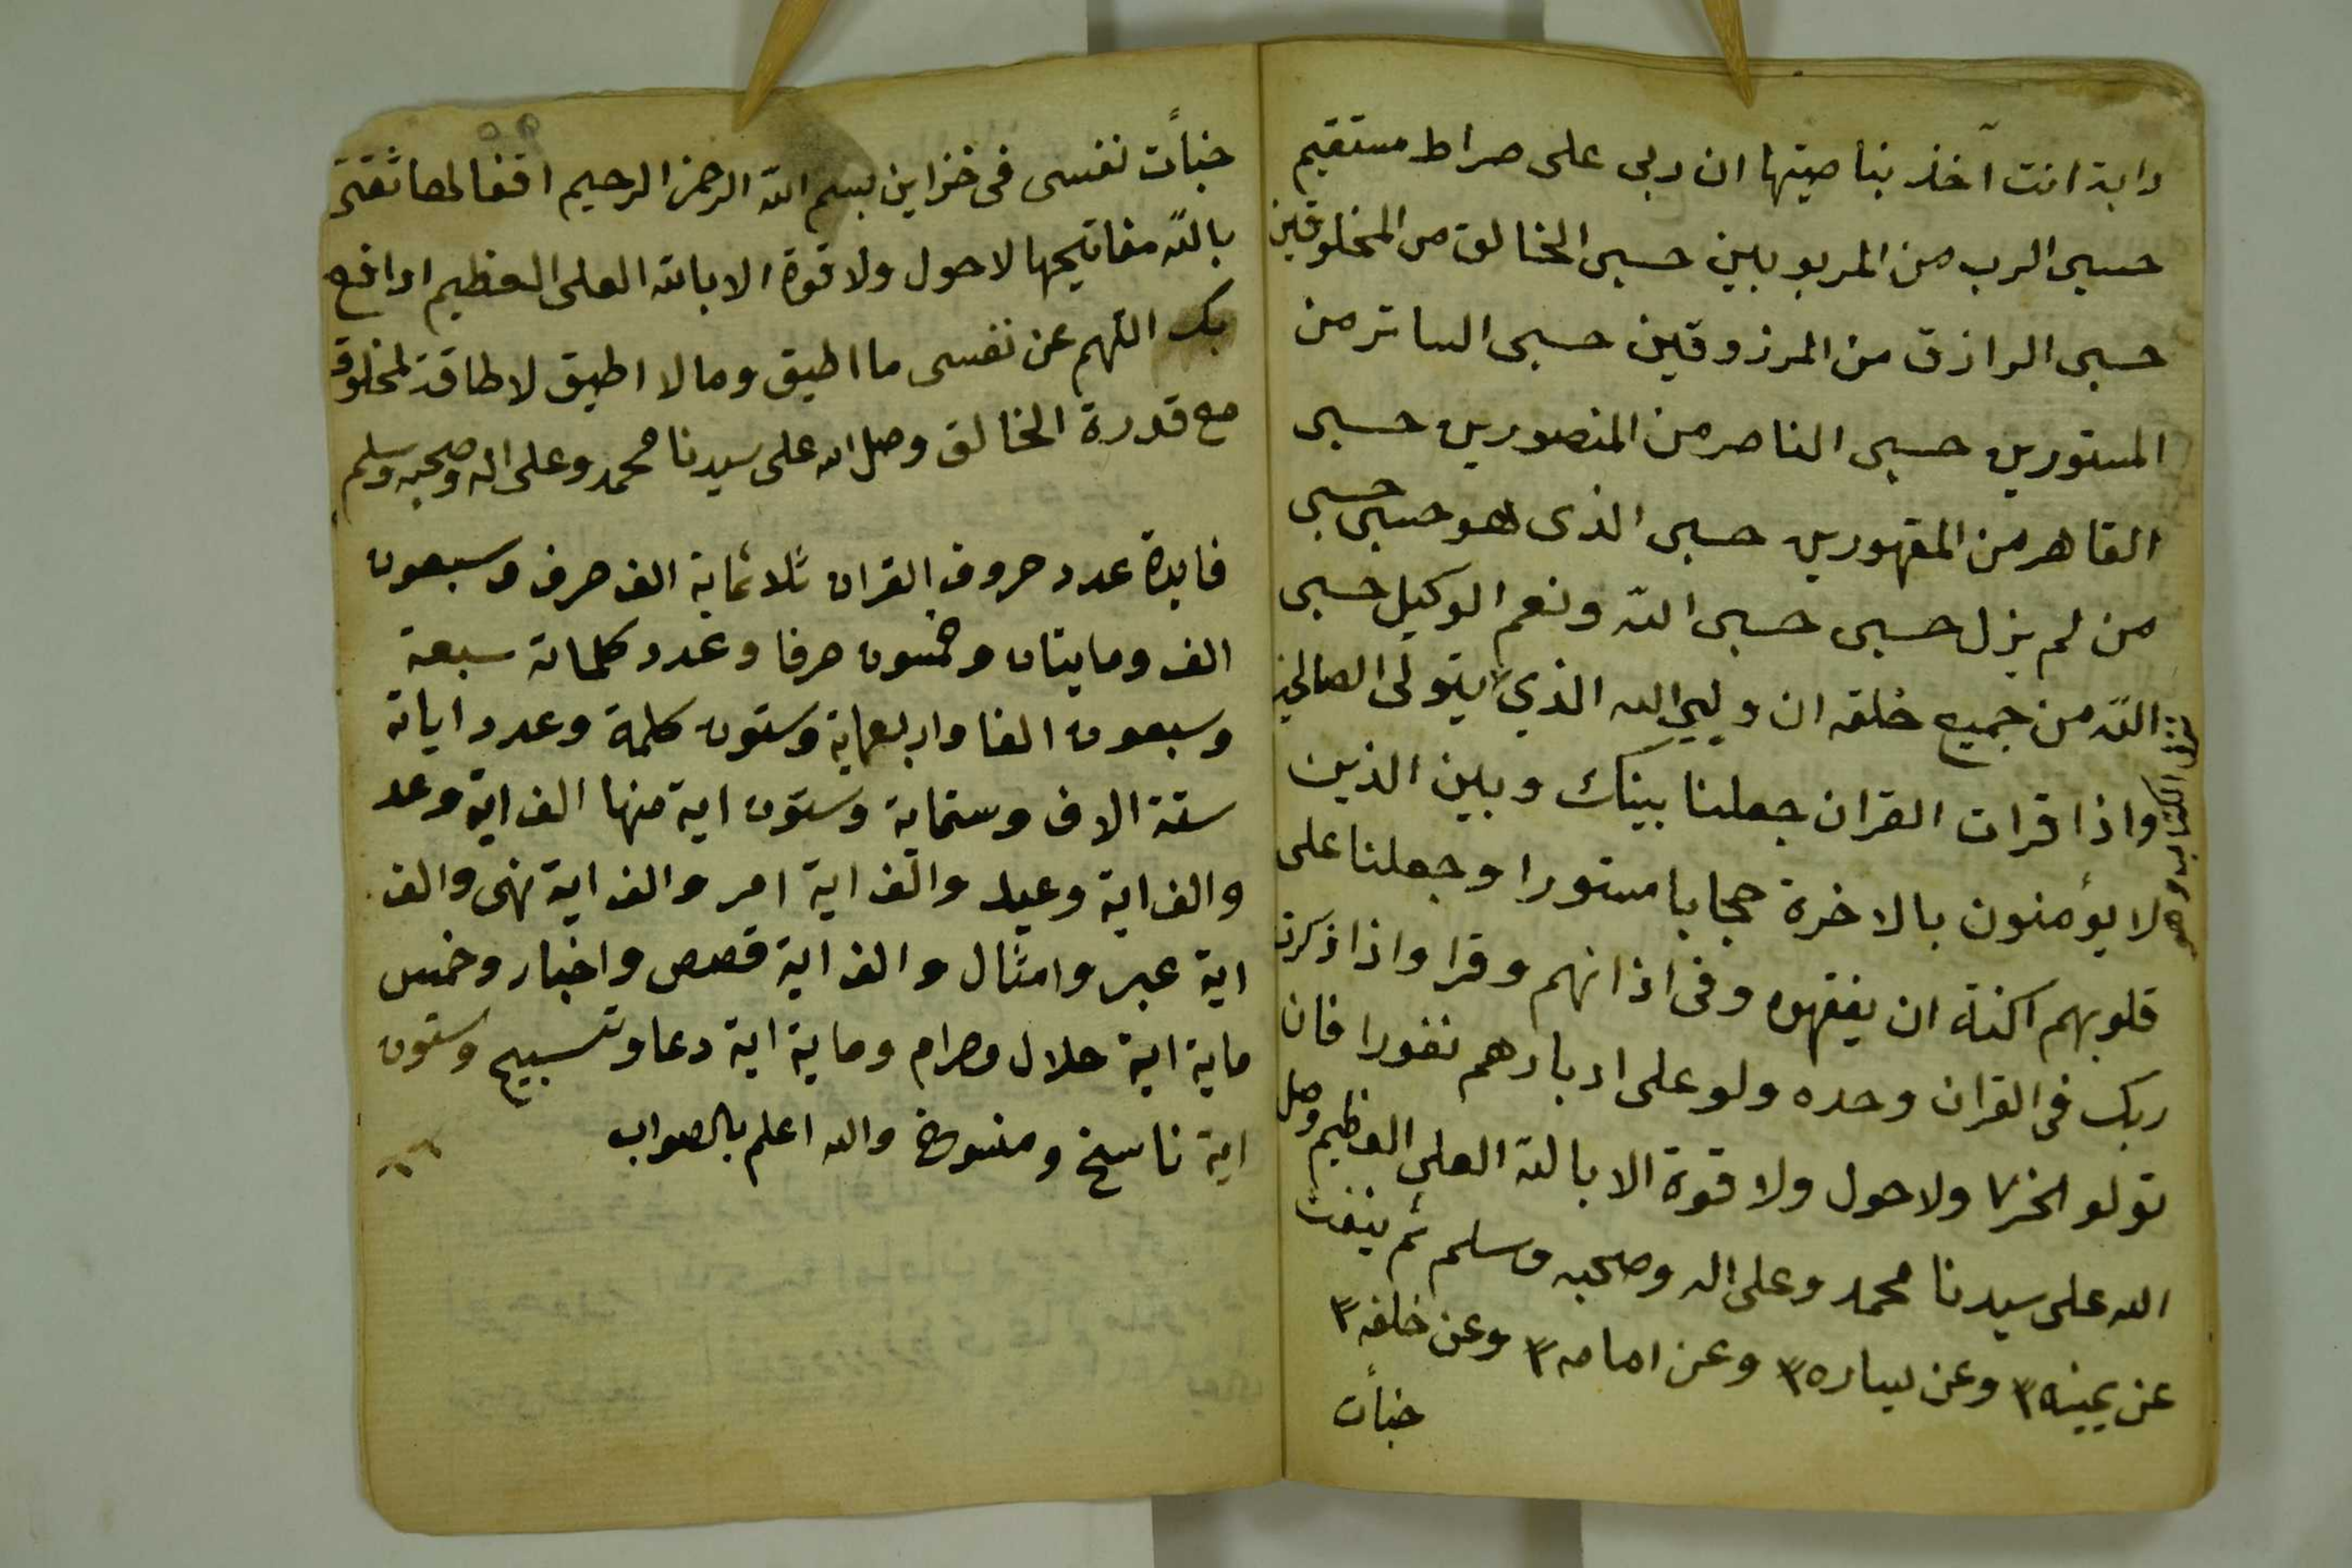 دابة انت آخذ بناصيتها ان ربى على صراط مستقيم
حسبى الرب من المربوبين حسبى الخالق من المخلوقين
حسبى الرازق من المرزوقين حسبى الساتر من
المستورين حسبى الناصر من المنصورين حسبى
القاهر من المقهورين حسبى الذى هو حسبى حسبى
من لم يزل حسبى حسبى الله ونعم الوكيل حسبى
الله من جميع خلقه ان وليى الله الذى يتولى الصالحين
نزل الكتاب وهو
واذا قرات القران جعلنا بينك وبين الذين
لا يؤمنون بالاخرة حجابا مستورا وجعلنا على
قلوبهم اكنة ان يفقهوه وفى اذانهم وقرا واذا ذكرت
ربك فى القران وحده ولو على ادبارهم نفورا فان
تولو الخ ٧ ولا حول ولا قوة الا بالله العلى العظيم وصل
الله على سيدنا محمد وعلى اله وصحبه وسلم ثم ينفث
عن يمينه ٣ وعن يساره ٣ وعن امامه ٣ وعن خلفه ٣
خبأت
خبأت نفسى فى خزاين بسم الله الرحمن الرحيم اقفالها ثقتى
بالله مفاتيحها لا حول ولا قوة الا بالله العلى العظيم ادافع
بك اللهم عن نفسى ما اطيق وما لا اطيق لا طاقة لمخلوق
مع قدرة الخالق وصل الله على سيدنا محمد وعلى اله وصحبه وسلم
فايدة عدد حروف القران ثلاثماية الف حرف وسبعون
الف ومايتان وخمسون حرفا وعدد كلماته سبعة
وسبعون الفا واربعماية وستون كلمة وعدد اياته
ستة الاف وستماية وستون اية منها الف اية وعد
والف اية وعيد والف اية امر والف اية نهى والف
اية عبر وامثال والف اية قصص واخبار وخمس
ماية اية حلال وحرام وماية اية دعا وتسبيح وستون
اية ناسخ ومنسوخ والله اعلم بالصواب